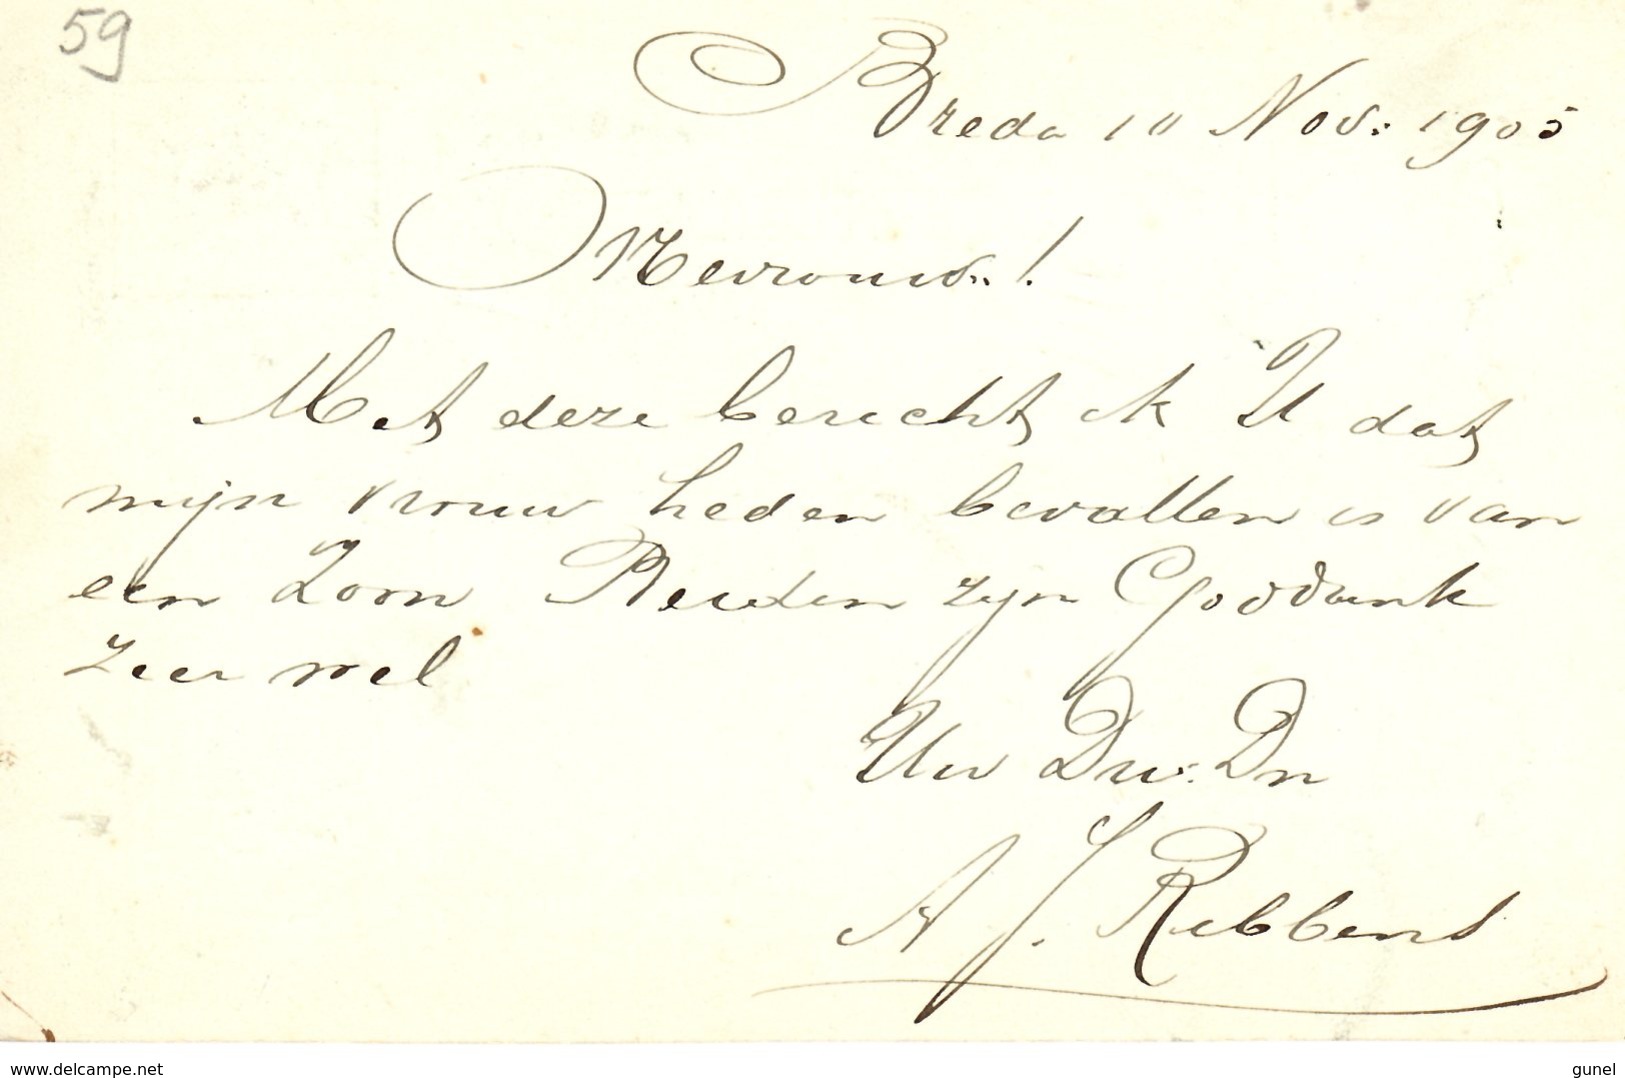 59
Breda 10 Nov: 1905
Mevrouw!
Met deze bericht ik U dat
mijn vrouw heden bevallen is van
een Zoon Beiden zijn Goddank
zeer wel
Uw Dw: Dn
A J. Rebbens
www.delcampe.net
gunel